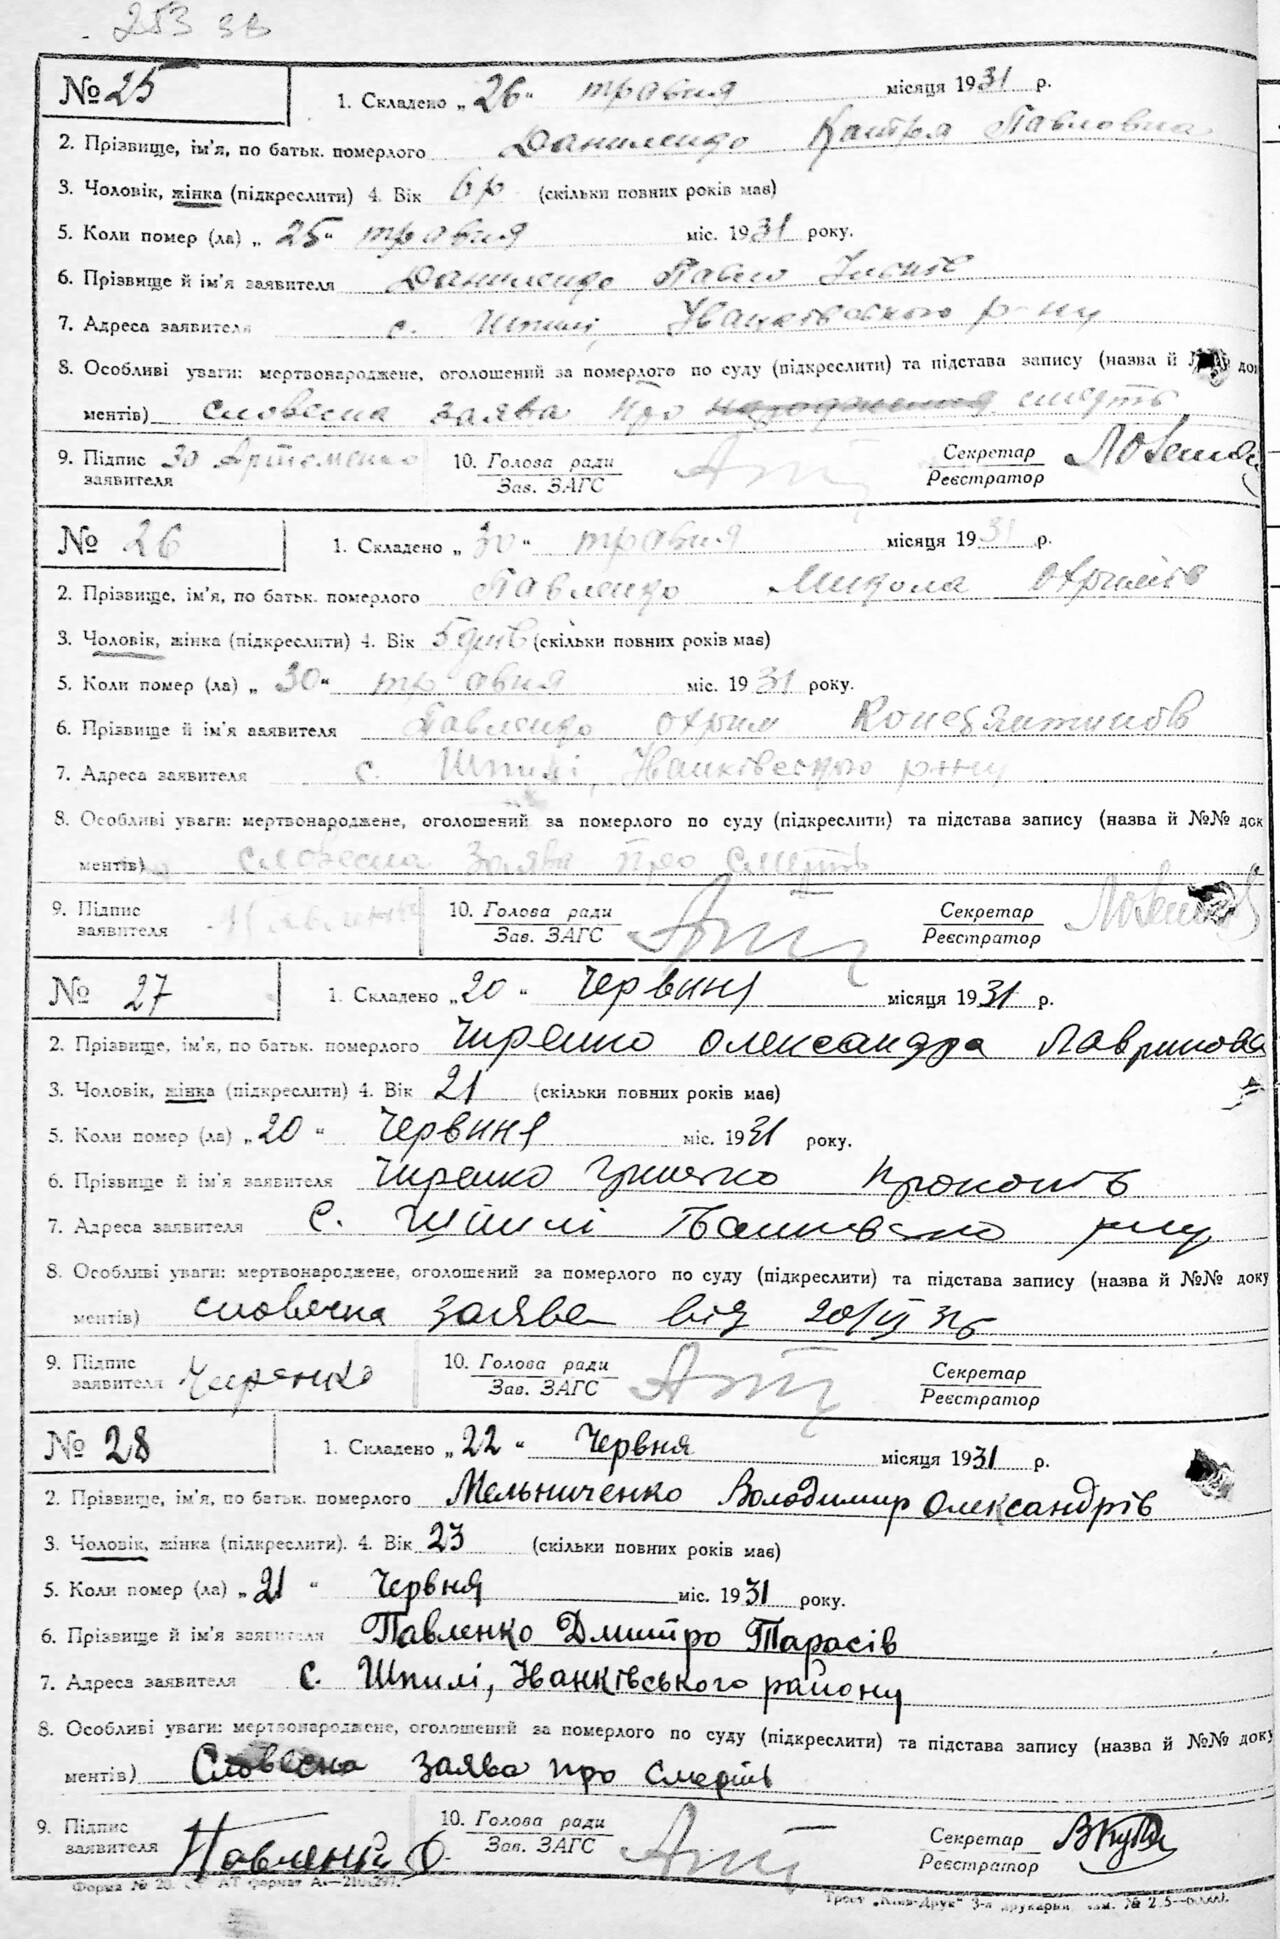 253 зв
№ 25 1. Складено „ 26 " травня місяця 1931 р.
2. Прізвище, ім'я, по батьк. померлого Даниленко Катря Павловна
3. Чоловік, жінка (підкреслити) 4. Вік 6 р (скільки повних років має)
5. Коли помер (ла) „ 25 " травня міс. 1931 року.
6. Прізвище й ім'я заявителя Даниленко Павло
7. Адреса заявителя с. Шпилі, Іванківського р-ну
8. Особливі уваги: мертвонароджене, оголошений за померлого по суду (підкреслити) та підстава запису (назва й доку
ментів) словесна заява про народження смерть
9. Підпис заявителя За Артеменко 10. Голова ради Зав. ЗАГС Секретар Реєстратор
№ 26 1. Складено „ 30 " травня місяця 1931 р.
2. Прізвище, ім'я, по батьк. померлого Павленко Микола Охримів
3. Чоловік, жінка (підкреслити) 4. Вік 5 днів (скільки повних років має)
5. Коли помер (ла) „ 30 " травня міс. 1931 року.
6. Прізвище й ім'я заявителя Павленко Охрим Констянтинов
7. Адреса заявителя с. Шпилі, Іванківського р-ну
8. Особливі уваги: мертвонароджене, оголошений за померлого по суду (підкреслити) та підстава запису (назва й №№ док
ментів) словесна заява про смерть
9. Підпис заявителя Павленко 10. Голова ради Зав. ЗАГС Секретар Реєстратор
№ 27 1. Складено „ 20 " Червиня місяця 1931 р.
2. Прізвище, ім'я, по батьк. померлого Чиренко Олександра Лавринова
3. Чоловік, жінка (підкреслити) 4. Вік 21 (скільки повних років має)
5. Коли помер (ла) „ 20 " Червиня міс. 1931 року.
6. Прізвище й ім'я заявителя Чиренко
7. Адреса заявителя с. Шпилі
8. Особливі уваги: мертвонароджене, оголошений за померлого по суду (підкреслити) та підстава запису (назва й №№ доку
ментів) словесна заява від 20/VI 31р
9. Підпис заявителя Чиренко 10. Голова ради Зав. ЗАГС Секретар Реєстратор
№ 28 1. Складено „ 22 " Червня місяця 1931 р.
2. Прізвище, ім'я, по батьк. померлого Мельниченко Володимир Олександрів
3. Чоловік, жінка (підкреслити). 4. Вік 23 (скільки повних років має)
5. Коли помер (ла) „ 21 " Червня міс. 1931 року.
6. Прізвище й ім'я заявителя Павленко Дмитро Тарасів
7. Адреса заявителя с. Шпилі, Іванківського району
8. Особливі уваги: мертвонароджене, оголошений за померлого по суду (підкреслити) та підстава запису (назва й №№ доку
ментів) Словесна заява про смерть
9. Підпис заявителя Павленко Д. 10. Голова ради Зав. ЗАГС Секретар Реєстратор
Форма № 20. формат
Трест „Київ-Друк" 3-я друкарня